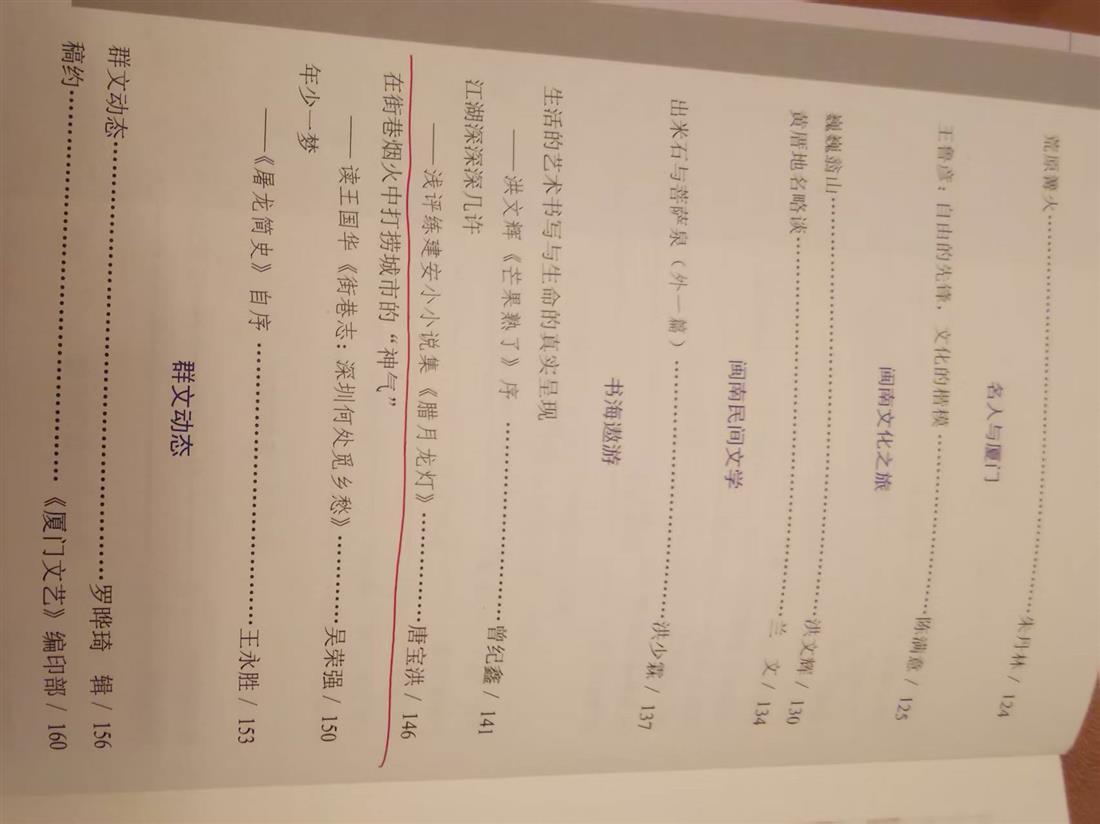 荒原篝火……………………………………朱丹林 / 124
名人与厦门
王鲁彦：自由的先锋，文化的楷模……………………陈满意 / 125
闽南文化之旅
巍巍翁山……………………………………………洪文辉 / 130
黄厝地名略谈………………………………………兰　文 / 134
闽南民间文学
出米石与菩萨泉（外一篇）…………………………洪少霖 / 137
书海遨游
生活的艺术书写与生命的真实呈现
——洪文辉《芒果熟了》序……………………曾纪鑫 / 141
江湖深深深几许
——浅评练建安小小说集《腊月龙灯》…………唐宝洪 / 146
在街巷烟火中打捞城市的“神气”
——读王国华《街巷志：深圳何处觅乡愁》………吴荣强 / 150
年少一梦
——《屠龙简史》自序……………………………王永胜 / 153
群文动态
群文动态……………………………………………罗晔琦　辑 / 156
稿约……………………………………………《厦门文艺》编印部 / 160